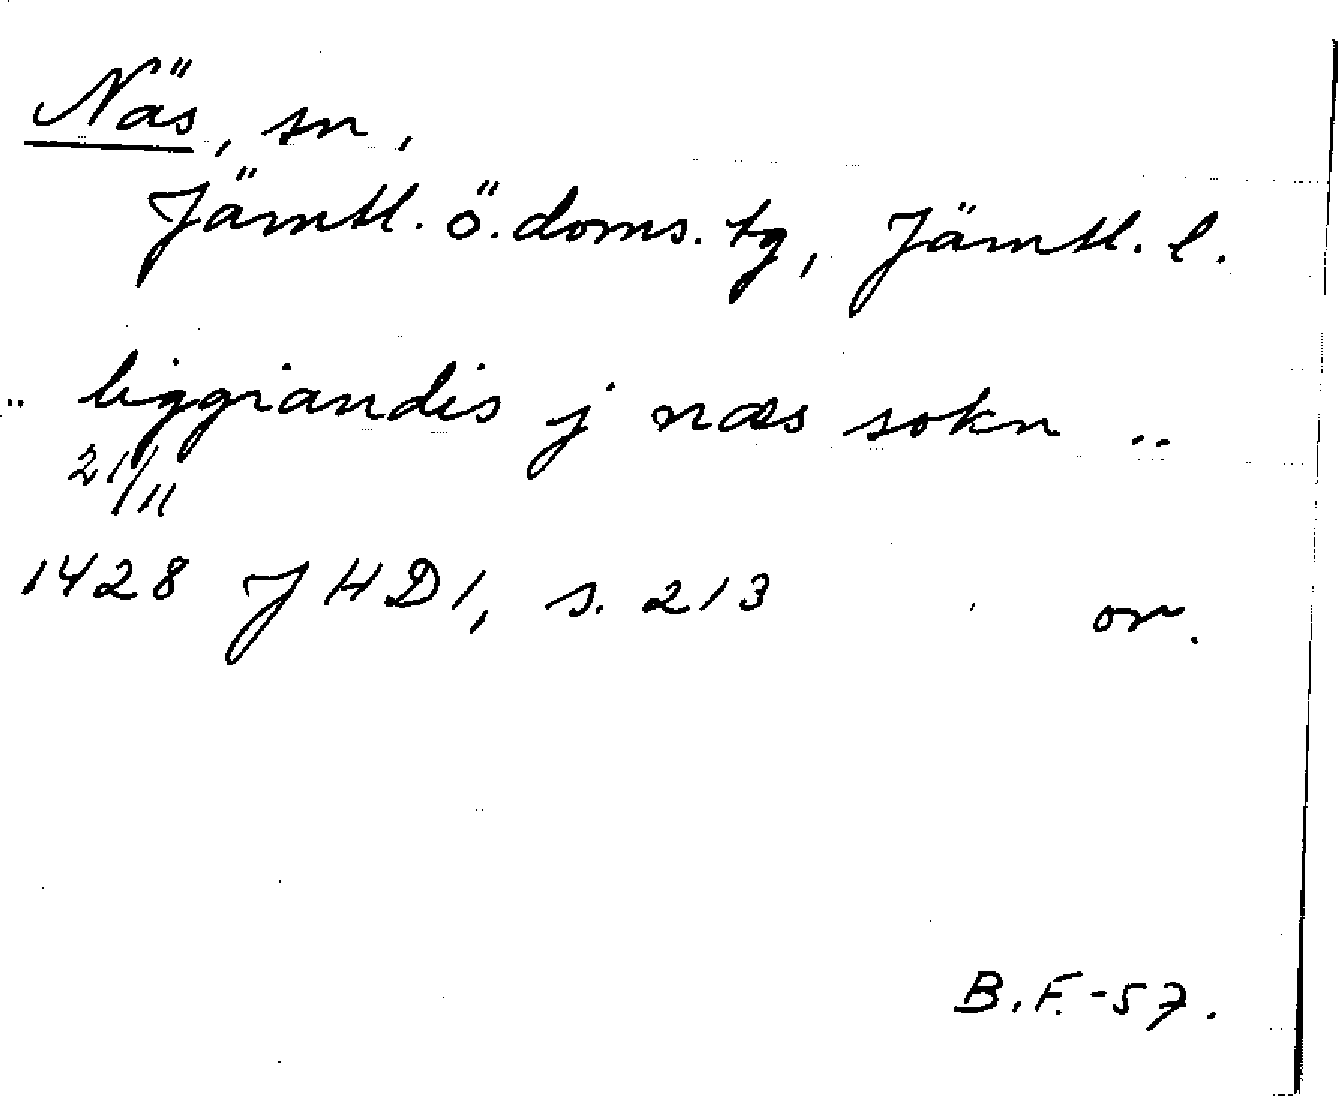 Näs, sn,
Jämtl. ö. doms. tg, Jämtl. l.
.. liggiandis j næs sokn ..
21/11
1428 JHD 1, s. 213 or.
B.F.-57.